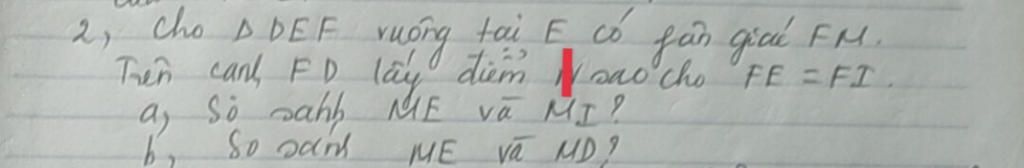 2, Cho Δ DEF vuông tại E có fân giác FM.
Trên cạnh FD lấy điểm sao cho FE = FI.
a, So sánh ME và MI?
b, So sánh ME và MD?